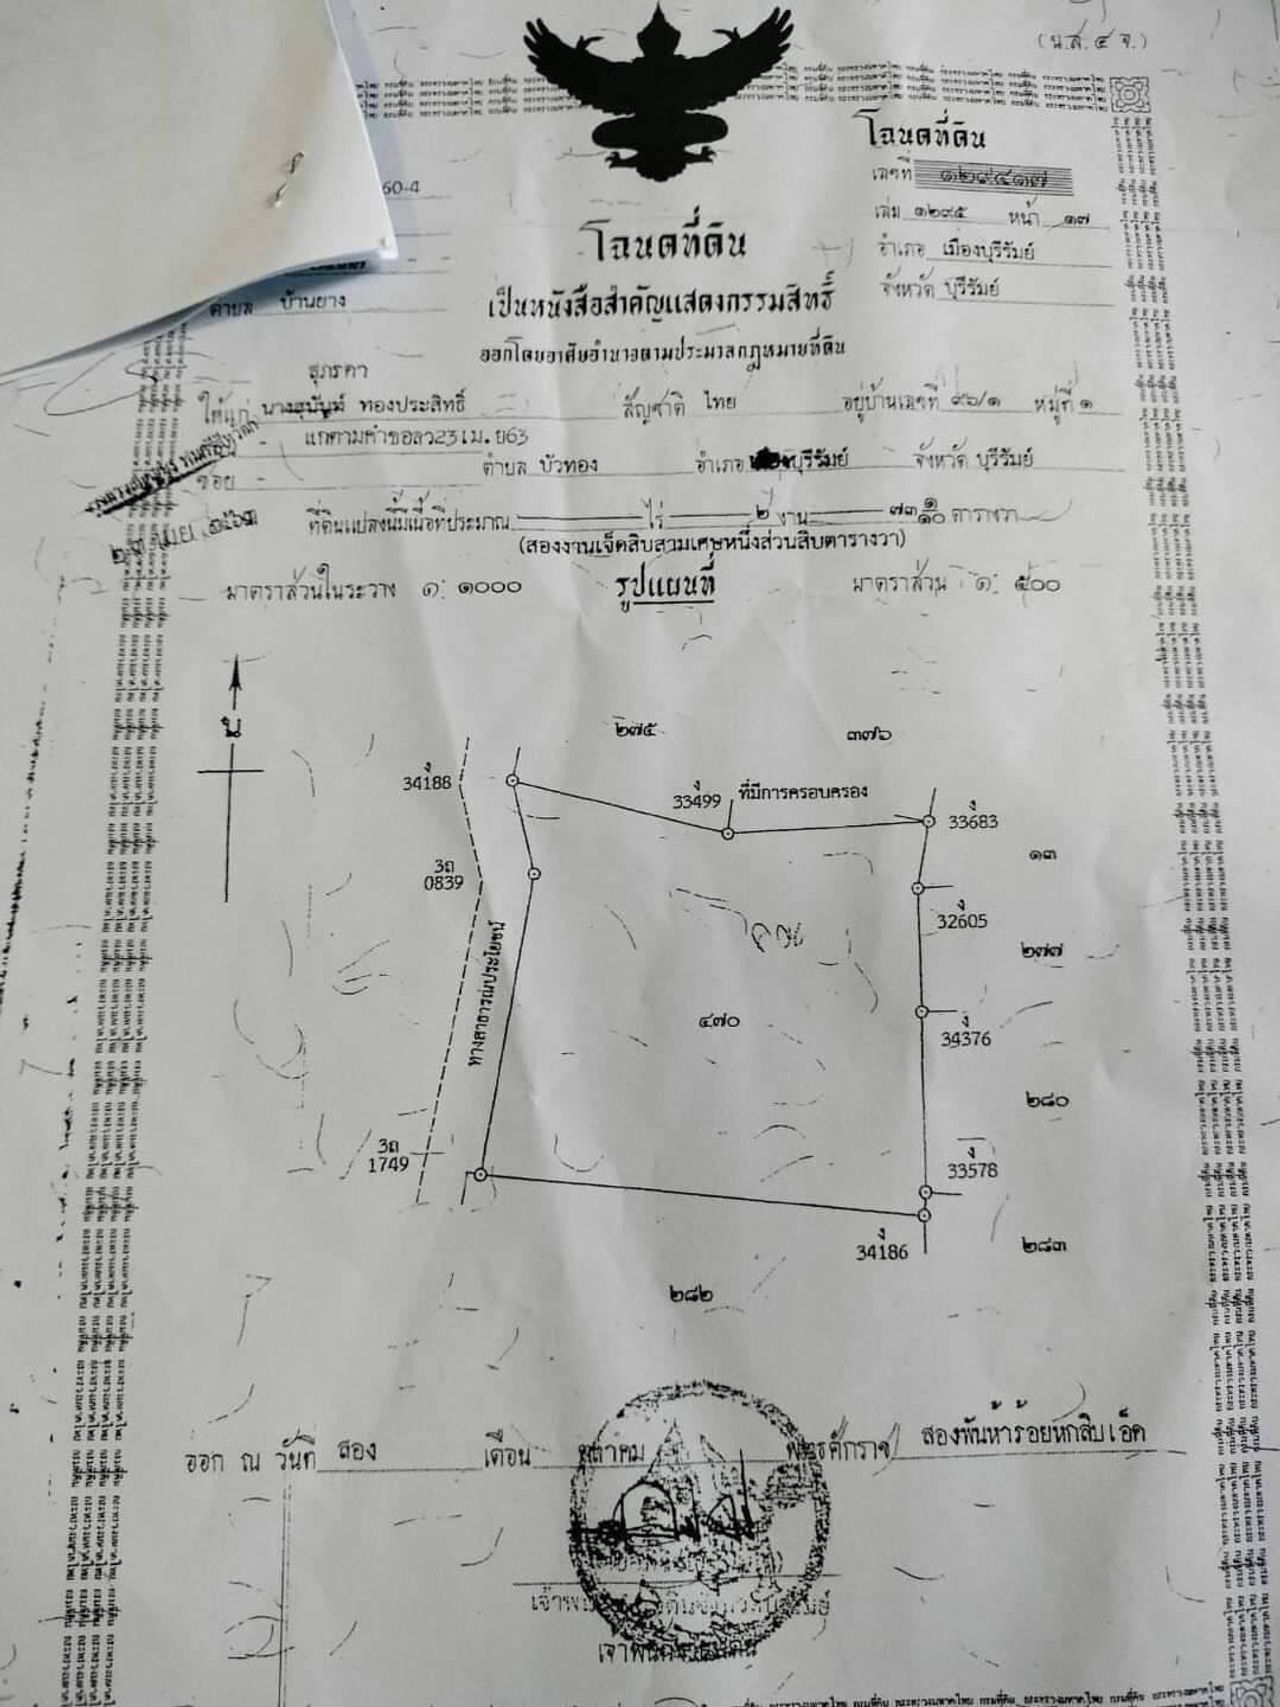 (น.ส. ๔ จ.)
โฉนดที่ดิน
เลขที่ ๑๒๙๔๑๗
60-4
เล่ม ๑๒๙๕ หน้า ๑๗
โฉนดที่ดิน
อำเภอ เมืองบุรีรัมย์
จังหวัด บุรีรัมย์
ตำบล บ้านยาง
เป็นหนังสือสำคัญแสดงกรรมสิทธิ์
ออกโดยอาศัยอำนาจตามประมวลกฎหมายที่ดิน
สุภรดา
ให้แก่ นางสุนันท์ ทองประสิทธิ์ สัญชาติ ไทย อยู่บ้านเลขที่ ๙๖/๑ หมู่ที่ ๑
แก้ตามคำขอลว23เม.ย63
ซอย - ตำบล บัวทอง อำเภอ เมืองบุรีรัมย์ จังหวัด บุรีรัมย์
๒๓ เม.ย. ๒๕๖๓
ที่ดินแปลงนี้มีเนื้อที่ประมาณ ไร่ ๒ งาน ๗๓ ๑/๑๐ ตารางวา
(สองงานเจ็ดสิบสามเศษหนึ่งส่วนสิบตารางวา)
มาตราส่วนในระวาง ๑: ๑๐๐๐ รูปแผนที่ มาตราส่วน ๑: ๕๐๐
น
๒๗๕ ๓๗๖
ง
34188
ง
33499
ที่มีการครอบครอง
ง
33683
๑๓
3ถ
0839
ง
32605
๒๗๗
ทางสาธารณประโยชน์
๔๗๐
ง
34376
๒๘๐
3ถ
1749
ง
33578
ง
34186
๒๘๓
๒๘๒
ออก ณ วันที่ สอง เดือน ตุลาคม พุทธศักราช สองพันห้าร้อยหกสิบเอ็ด
เจ้าพนักงานที่ดิน